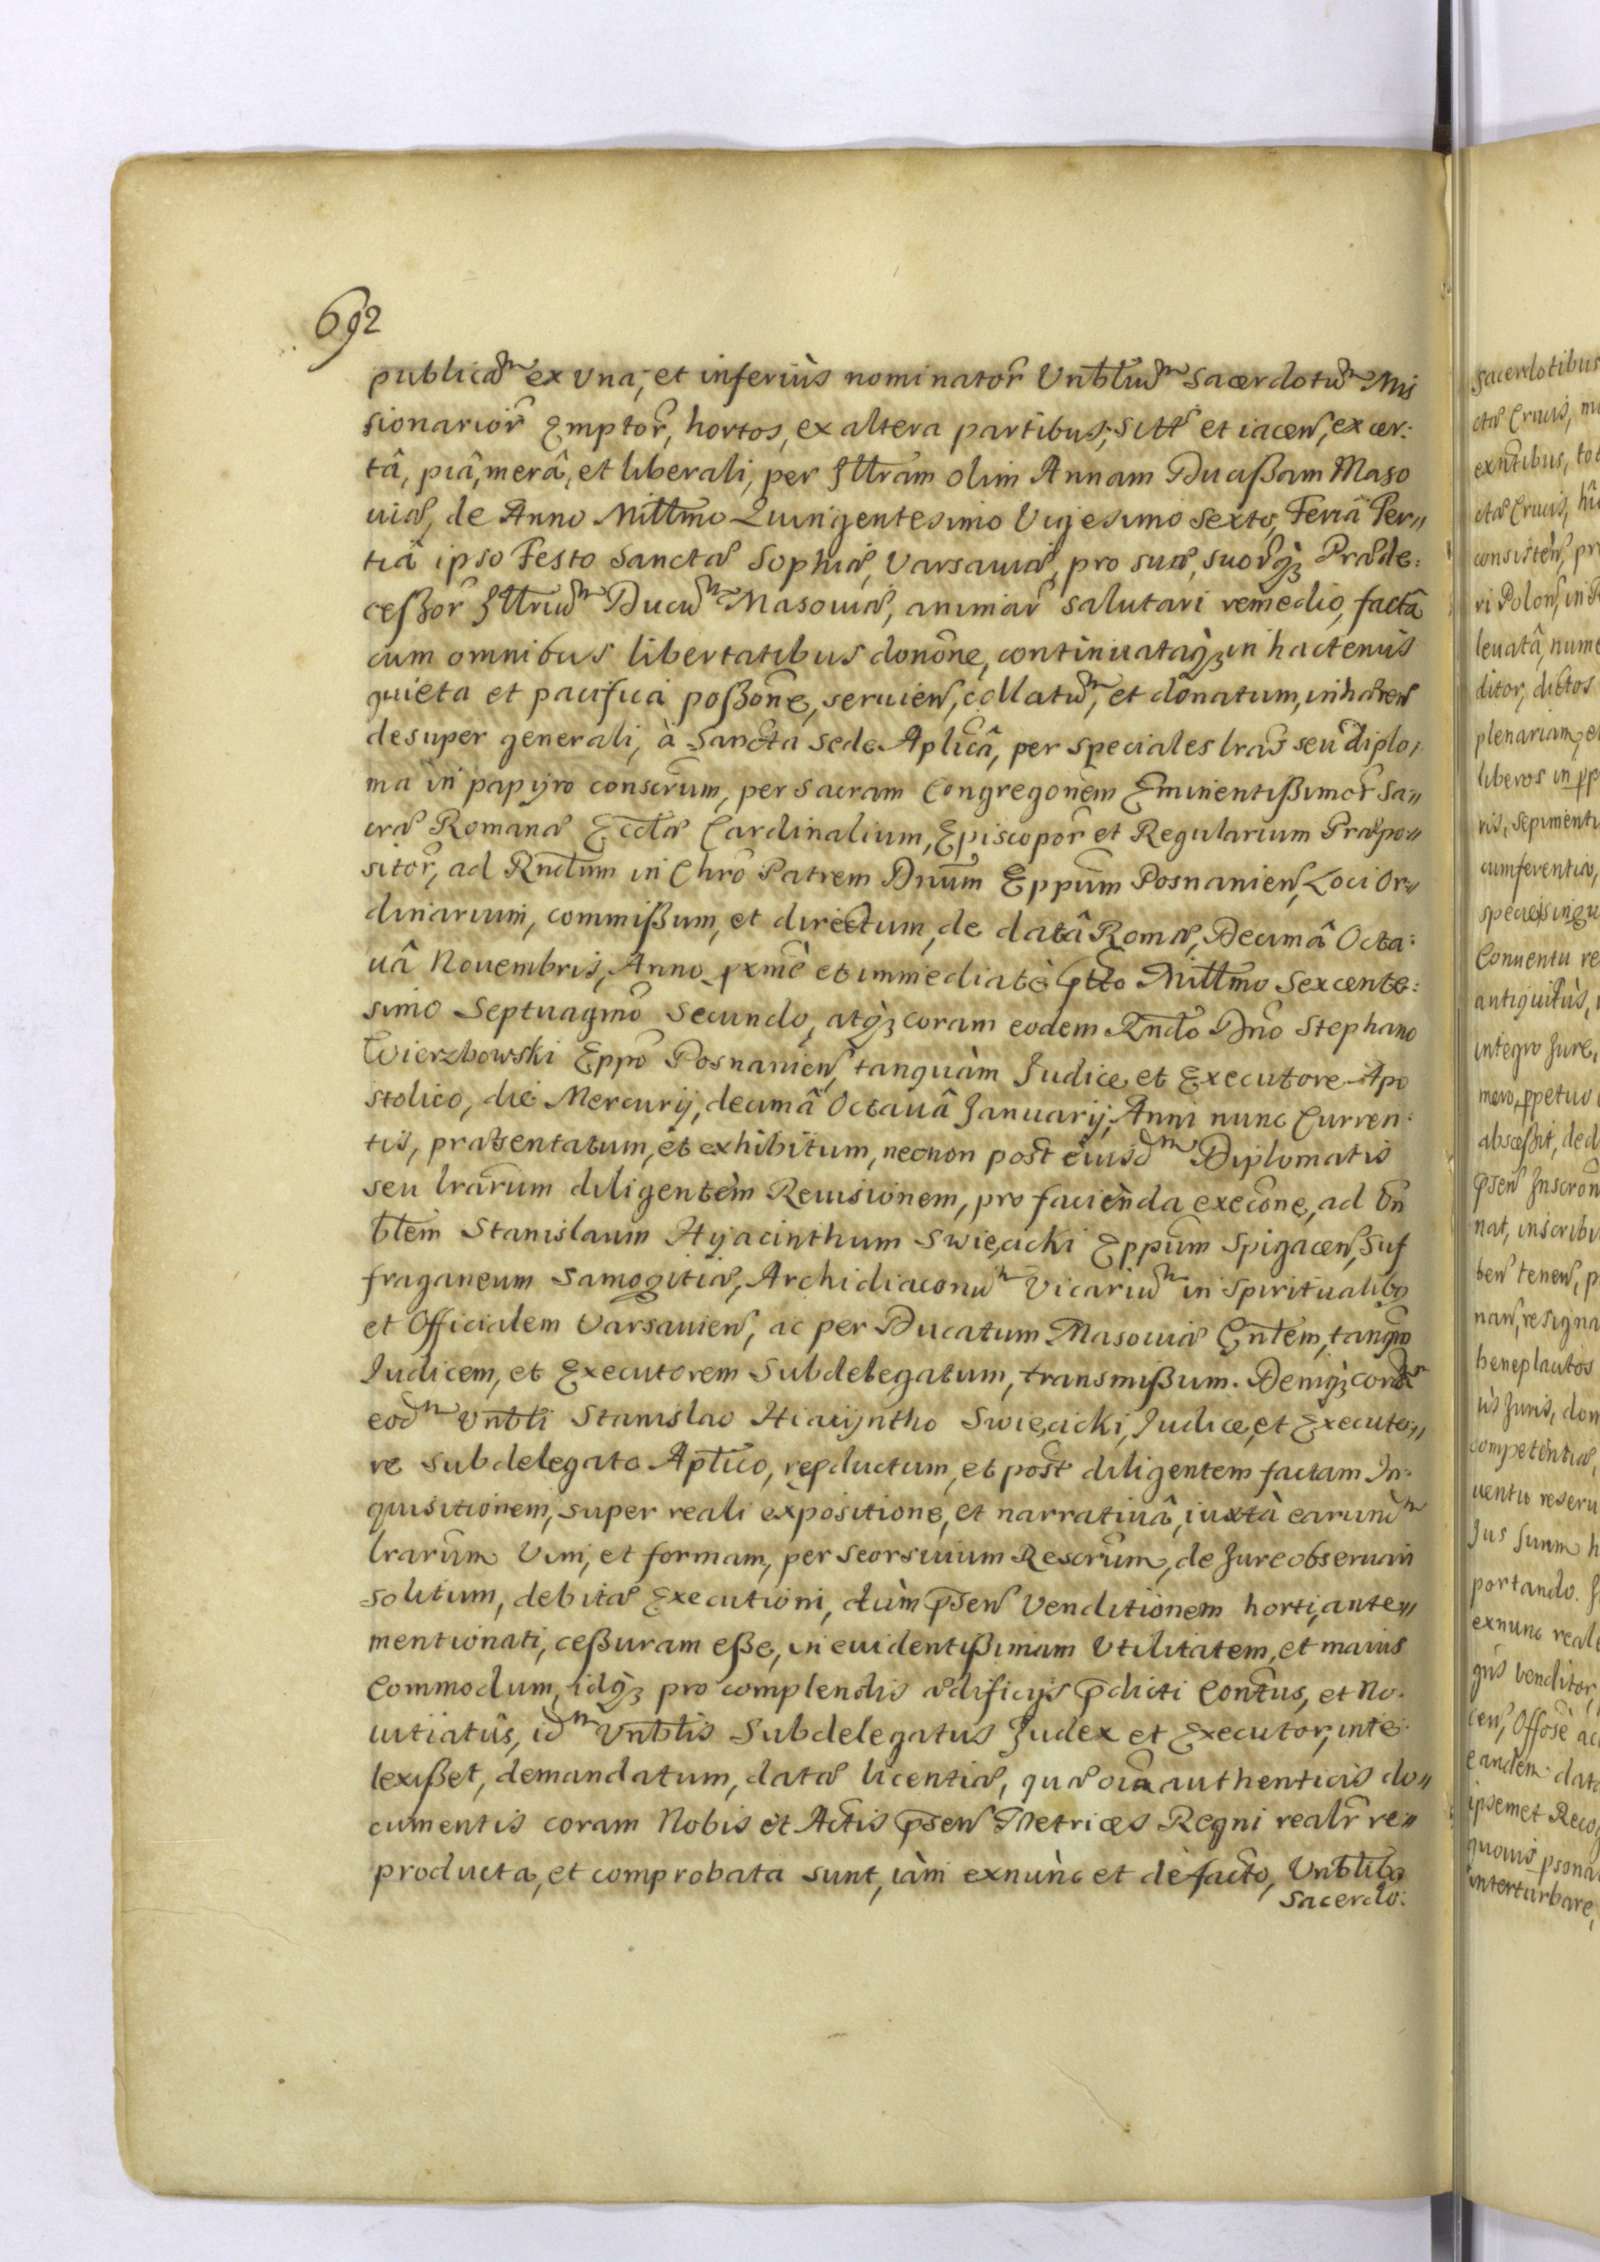 692
publicam ex una, et inferiùs nominator Unbliũm Sacerdotum Mis
sionarior Emptor, hortos, ex altera partibus, Sitt et iacen, ex cer:
tâ, piâ, merâ, et liberali, per Illrem olim Annam Ducißam Maso
uiæ, de Anno Millmo Quingentesimo Vigesimo Sexto, Feriâ Ter„
tiâ ipso Festo Sanctæ Sophiæ, Varsauiæ, pro suæ, suorq3 Præde:
ceßor Illrium Ducum Masouiæ, animar salutari remedio, factâ
cum omnibus libertatibus donône, continuataq3 in hactenus
quieta et pacifica poßone, seruien, collatum, et donatum, inhæren
desuper generali, à Sancta Sede Aplicâ, per speciales lras seu diplo,
ma in papyro conscrum, per Sacram Congregonem Eminentißimor Sa„
cræ Romanæ Ecclæ Cardinalium, Episcopor et Regularium Præpo„
sitor, ad Rndum in Chro Patrem Dnum Eppum Posnanien, Loci Or„
dinarium, commißum, et directum, de datâ Romæ, Decimâ Octa:
uâ Nouembris, Anno pxme et immediatè ptto Millmo Sexcente:
simo Septuagmo Secundo, atq3 coram eodem Rndo Dno Stephano
Wierzbowski Eppo Posnanien, tanquàm Judice et Executore Apo
stolico, die Mercurij, decimâ Octauâ Januarij, Anni nunc Curren:
tis, præsentatum, et exhibitum, necnon post eiusdm Diplomatis
seu lrarum diligentèm Reuisionem, pro facienda execone, ad Vn
blem Stanislaum Hyacinthum Swięcicki Eppum Spigacen, Suf
fraganeum Samogitiæ, Archidiaconum Vicarium in Spiritualibq
et Officialem Varsauien, ac per Ducatum Masouiæ Gntem, tanqm
Judicem, et Executorem Subdelegatum, transmißum. Deniq3 coram
eodm Vnbli Stanislao Hiacijntho Swięcicki, Judice, et Executo„
re Subdelegato Aplico, repductum, et post diligentem factam In:
quisitionem, super reali expositione, et narratiuâ, iuxtà earundm
lrarum Vim, et formam, per Seorsiuum Rescrum, de Jure obseruari
solitum, debitæ Executioni, dùm psen Venditionem horti, ante„
mentionati, ceßuram eße, in euidentißimam Vtilitatem, et maius
Commodum, idq3 pro complendis ædificijs pdicti Contus, et No:
uitiatûs, idm Vnblis Subdelegatus Judex et Executor, inte
lexißet, demandatum, datæ licentiæ, quæ oia authenticis do„
cumentis coram Nobis et Actis psen Metrices Regni realr re„
producta, et comprobata sunt, iàm exnùnc et de facto, Vnblibq
Sacerdo: